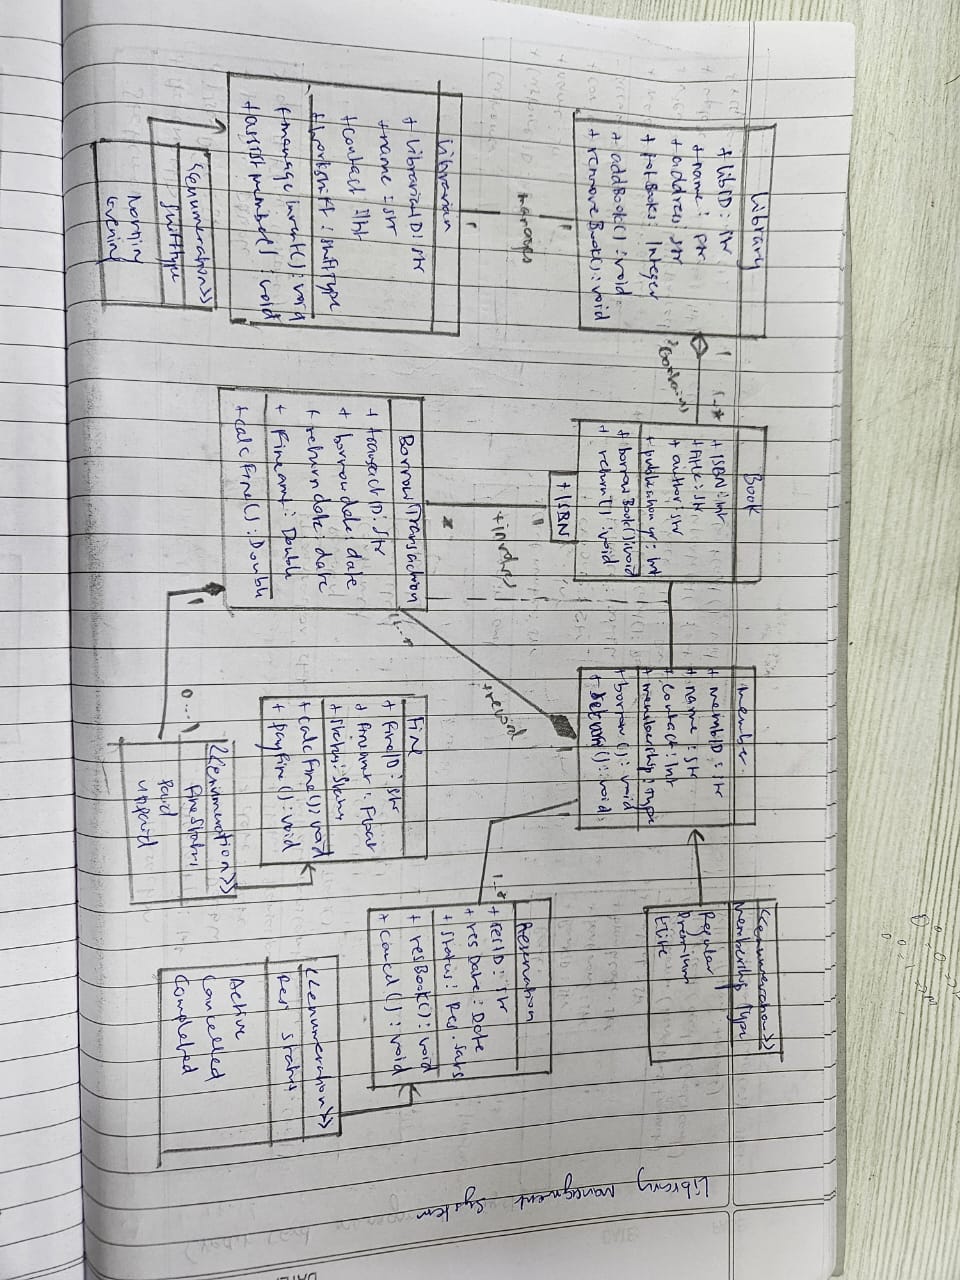 Library Managment System
Library
+ LibID : str
+ name : str
+ address : str
+ totBooks : Integer
+ addBook() : void
+ remove Book() : void
1
contains
1..*
Book
+ ISBN : Int
+ title : str
+ author : str
+ publication yr : Int
+ borrow Book() : void
+ return() : void
+ ISBN
member
+ membID : str
+ name : str
+ contact : Int
+ membership : Type
+ borrow () : void
+ return() : void
<<enumeration>>
Membership Type
Regular
Premium
Elite
1
manages
1
Librarian
+ LibrarianID : str
+ name : str
+ contact : Int
+ workshift : shiftType
+ manage invent() : void
+ assist member() : void
<<enumeration>>
shifttype
Mornin
Evening
1
+ involves
*
Borrow Transaction
+ transactID : str
+ borrow date : date
+ return date : date
+ Fine amt : Double
+ calc fine() : Double
1..*
+ record
1
1
0...1
Fine
+ FineID : str
+ fineamt : Float
+ status : Status
+ calc Fine() : void
+ payfine () : void
<<enumeration>>
fine status
Paid
unpaid
1..*
Reservation
+ resID : str
+ res Date : Date
+ status : Res. Sats
+ resBook() : void
+ cancel () : void
<<enumeration>>
Res status
Active
Cancelled
Completed